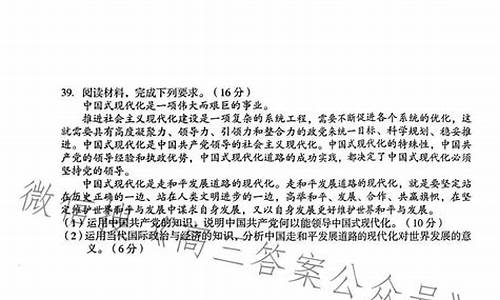 39. 阅读材料，完成下列要求。（16分）
中国式现代化是一项伟大而艰巨的事业。
推进社会主义现代化建设是一项复杂的系统工程，需要不断促进各个系统的优化，这
就需要具有高度凝聚力、领导力、引领力和整合力的政党来统一目标、科学规划、稳妥推
进。中国式现代化是中国共产党领导的社会主义现代化。中国式现代化的特殊性，中国共
产党的领导经验和执政优势，中国式现代化道路的成功实践，都决定了中国式现代化必须
坚持党的领导。
中国式现代化是走和平发展道路的现代化。走和平发展道路的现代化，就是要坚定站
在历史正确的一边、站在人类文明进步的一边，高举和平、发展、合作、共赢旗帜，在坚
定维护世界和平与发展中谋求自身发展，又以自身发展更好维护世界和平与发展。
（1）运用中国共产党的知识，说明中国共产党何以能领导中国式现代化。（10分）
（2）运用当代国际政治与经济的知识，分析中国走和平发展道路的现代化对世界发展的意
义。（6分）
《高三答案公众号》